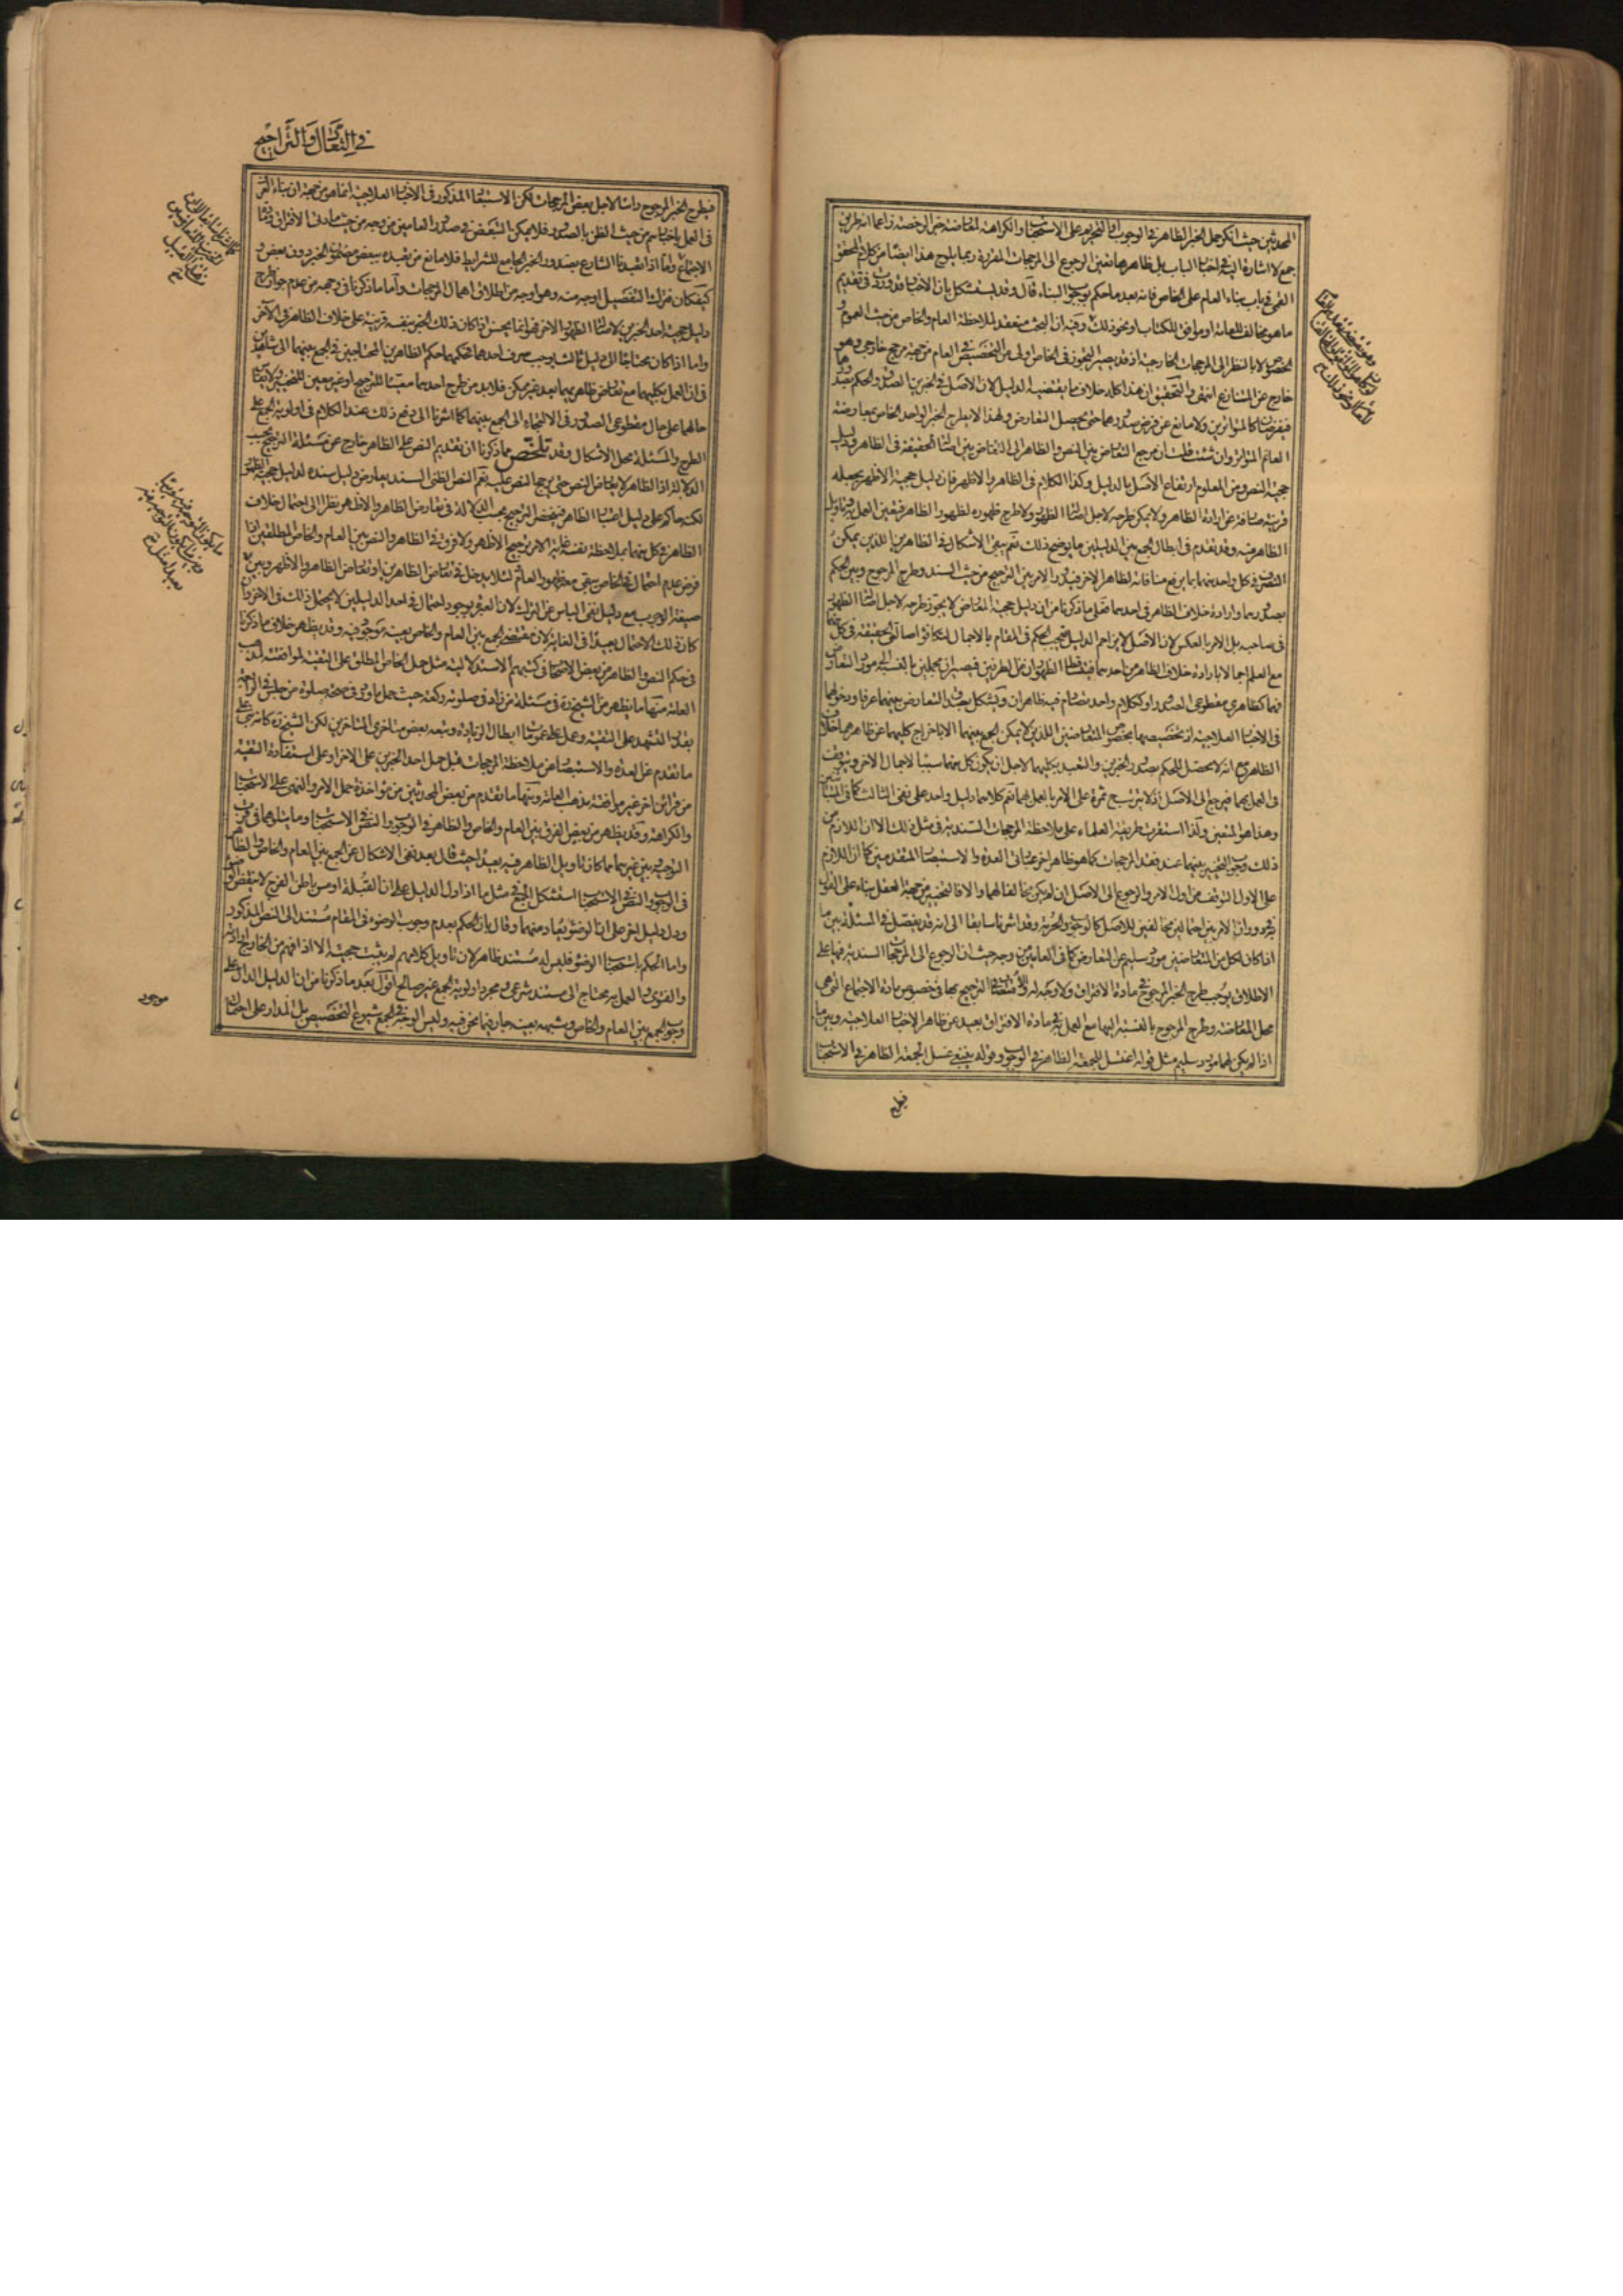 المحدثين حيث انكر حمل الخبر الظاهر في الوجوب او التحريم على الاستحباب او الكراهة لمعارضة خبر الرخصة زاعما انه طريق
جمع لا اشارة اليه في اخبار الباب بل ظاهرها تعين الرجوع الى المرجحات المقررة وربما يلوح هذا ايضا من كلام المحقق
القمي في باب بناء العام على الخاص فانه بعد ما حكم بوجوب البناء قال وقد يستشكل بان الاخبار قد وردت في تقديم
ما هو مخالف للعامة او موافق للكتاب او نحو ذلك وفيه ان البحث منعقد لملاحظة العام والخاص من حيث العموم و
الخصوص لا بالنظر الى المرجحات الخارجية اذ قد يصير التجوز في الخاص اولى من التخصيص في العام من جهة مرجح خارجي وهو
خارج عن المتنازع انتهى والتحقيق ان هذا كله خلاف ما يقتضيه الدليل لان الاصل في الخبرين الصدق والحكم بصدورهما
فيفرضان كالمتواترين ولا مانع عن فرض صدورهما حتى يحصل التعارض ولهذا لا يطرح الخبر الواحد الخاص بمعارضة
العام المتواتر وان شئت قلت ان مرجع التعارض بين النص والظاهر الى التعارض بين اصالة الحقيقة في الظاهر ودليل
حجية النص ومن المعلوم ارتفاع الاصل بالدليل وكذا الكلام في الظاهر والاظهر فان دليل حجية الاظهر يجعله
قرينة صارفة عن ارادة الظاهر ولا يمكن طرحه لاجل اصالة الظهور ولا طرح ظهوره لظهور الظاهر فيتعين العمل به وتاويل
الظاهر فيه وقد تقدم في ابطال الجمع بين الدليلين ما يوضح ذلك نعم يبقى الاشكال في الظاهرين اللذين يمكن
التصرف في كل واحد منهما بما يرفع منافاته لظاهر الاخر فيدور الامر بين الترجيح من حيث السند وطرح المرجوح وبين الحكم
بصدورهما وارادة خلاف الظاهر في احدهما فعلى ما ذكرنا من ان دليل حجية المعارض لا يجوز طرحه لاجل اصالة الظهور
في صاحبه بل الامر بالعكس لان الاصل لا يزاحم الدليل يجب الحكم في المقام بالاجمال لتكافؤ اصالتي الحقيقة في كل منهما
مع العلم اجمالا بارادة خلاف الظاهر من احدهما فيتساقط الظهوران من الطرفين فيصيران مجملين بالنسبة الى مورد التعارض
فهما كظاهري مقطوعي الصدور او ككلام واحد تصادم فيه ظاهران ويشكل بصدق التعارض بينهما عرفا ودخولهما
في الاخبار العلاجية اذ تخصيصها بخصوص المتعارضين اللذين لا يمكن الجمع بينهما الا باخراج كليهما عن ظاهرهما خلاف
الظاهر مع انه لا محصل للحكم بصدور الخبرين والتعبد بكليهما لاجل ان يكون كل منهما سببا لاجمال الاخر ويتوقف
في العمل بهما فيرجع الى الاصل اذ لا يترتب ح ثمرة على الامر بالعمل بهما نعم كلاهما دليل واحد على نفي الثالث كما في المتباينين
وهذا هو المتعين ولذا استقرت طريقة العلماء على ملاحظة المرجحات السندية في مثل ذلك الا ان اللازم من
ذلك وجوب التخيير بينهما عند فقد المرجحات كما هو ظاهر اخر عبارتي العدة والاستبصار المتقدمتين كما ان اللازم
على الاول التوقف من اول الامر والرجوع الى الاصل ان لم يكن مخالفا لهما والا فالتخيير من جهة العقل بناء على القول
به في دوران الامر بين احتمالين مخالفين للاصل كالوجوب والحرمة وقد اشرنا سابقا الى انه قد يفصل في المسئلة بين ما
اذا كان لكل من المتعارضين مورد سليم عن التعارض كما في العامين من وجه حيث ان الرجوع الى المرجحات السندية فيهما على
الاطلاق يوجب طرح الخبر المرجوح في مادة الافتراق ولا وجه له والاقتصار في الترجيح بها في خصوص مادة الاجتماع التي هي
محل المعارضة وطرح المرجوح بالنسبة اليها مع العمل به في مادة الافتراق بعيد عن ظاهر الاخبار العلاجية وبين ما
اذا لم يكن لهما مورد سليم مثل قوله اغتسل للجمعة الظاهر في الوجوب وقوله ينبغي غسل الجمعة الظاهر في الاستحباب
فيطرح
في التعادل والتراجيح
فيطرح الخبر المرجوح راسا لاجل بعض المرجحات لكن الاستبعاد المذكور في الاخبار العلاجية انما هو من جهة ان بناء العرف
في العمل باخبارهم من حيث الظن بالصدور فلا يمكن التبعض في صدور العامين من وجه من حيث مادتي الافتراق ومادة
الاجتماع واما اذا تعبدنا الشارع بصدور الخبر الجامع للشرايط فلا مانع من تعبده ببعض مضمون الخبر دون بعض و
كيف كان فترك التفصيل اوجه منه وهو اوجه من اطلاق اهمال المرجحات واما ما ذكرنا في وجهه من عدم جواز طرح
دليل حجية احد الخبرين لاصالة الظهور في الاخر فهو انما يحسن اذا كان ذلك الخبر بنفسه قرينة على خلاف الظاهر في الاخر
واما اذا كان محتاجا الى دليل ثالث يوجب صرف احدهما فحكمهما حكم الظاهرين المحتاجين في الجمع بينهما الى شاهدين
في ان العمل بكليهما مع تعارض ظاهريهما يعد غير ممكن فلا بد من طرح احدهما معينا للترجيح او غير معين للتخيير ولا يقاس
حالهما على حال مقطوعي الصدور في الالتجاء الى الجمع بينهما كما اشرنا الى دفع ذلك عند الكلام في اولوية الجمع على
الطرح والمسئلة محل الاشكال وقد تلخص مما ذكرنا ان تقديم النص على الظاهر خارج عن مسئلة الترجيح بحسب
الدلالة اذ الظاهر لا يعارض النص حتى يرجح النص عليه نعم النص الظني السند يعارض دليل سنده لدليل حجية الظهور
لكنه حاكم على دليل اعتبار الظاهر فينحصر الترجيح بحسب الدلالة في تعارض الظاهر والاظهر نظرا الى احتمال خلاف
الظاهر في كل منهما بملاحظة نفسه غاية الامر ترجيح الاظهر ولا فرق في الظاهر والنص بين العام والخاص المطلقين اذا
فرض عدم احتمال في الخاص يبقى معه ظهور العام لئلا يدخل في تعارض الظاهرين او تعارض الظاهر والاظهر وبين
صيغة الوجوب مع دليل نفي الباس عن الترك لان العبرة بوجود احتمال في احد الدليلين لا يحتمل ذلك في الاخر وان
كان ذلك الاحتمال بعيدا في الغاية لان مقتضى الجمع بين العام والخاص بعينه موجود فيه وقد يظهر خلاف ما ذكرنا
في حكم النص والظاهر من بعض الاصحاب في كتبهم الاستدلالية مثل حمل الخاص المطلق على التقية لموافقته لمذهب
العامة منها ما يظهر من الشيخ ره في مسئلة من زاد في صلوته ركعة حيث حمل ما ورد في صحة صلوة من جلس في الرابعة
بقدر التشهد على التقية وعمل على عمومات ابطال الزيادة وتبعه بعض متاخري المتاخرين لكن الشيخ ره كانه بنى على
ما تقدم عن العدة والاستبصار من ملاحظة المرجحات قبل حمل احد الخبرين على الاخر او على استفادة التقية
من قرائن اخر غير موافقة مذهب العامة ومنها ما تقدم من بعض المحدثين من مؤاخذة حمل الامر والنهي على الاستحباب
والكراهة وقد يظهر من بعض الفرق بين العام والخاص والظاهر في الوجوب والنص في الاستحباب وما يتلوهما في قرب
التوجيه وبين غيرهما مما كان تاويل الظاهر فيه بعيدا حيث قال بعد نفي الاشكال عن الجمع بين العام والخاص والظاهر
في الوجوب والنص في الاستحباب استشكل الجمع في مثل ما اذا دل الدليل على ان القبلة او مس باطن الفرج لا ينقض الوضوء
ودل دليل اخر على ان الوضوء يعاد منهما وقال بان الحكم بعدم وجوب الوضوء في المقام مستند الى النص المذكور
واما الحكم باستحباب الوضوء فليس له مستند ظاهر لان تاويل كلامهم لم يثبت حجيته الا اذا فهم من الخارج ارادته
والفتوى والعمل به محتاج الى مستند شرعي ومجرد اولوية الجمع غير صالح اقول بعد ما ذكرنا من ان الدليل الدال على
وجوب الجمع بين العام والخاص وشبهه بعينه جار فيما نحن فيه وليس الوجه في الجمع شيوع التخصيص بل المدار على احتمال
موجود